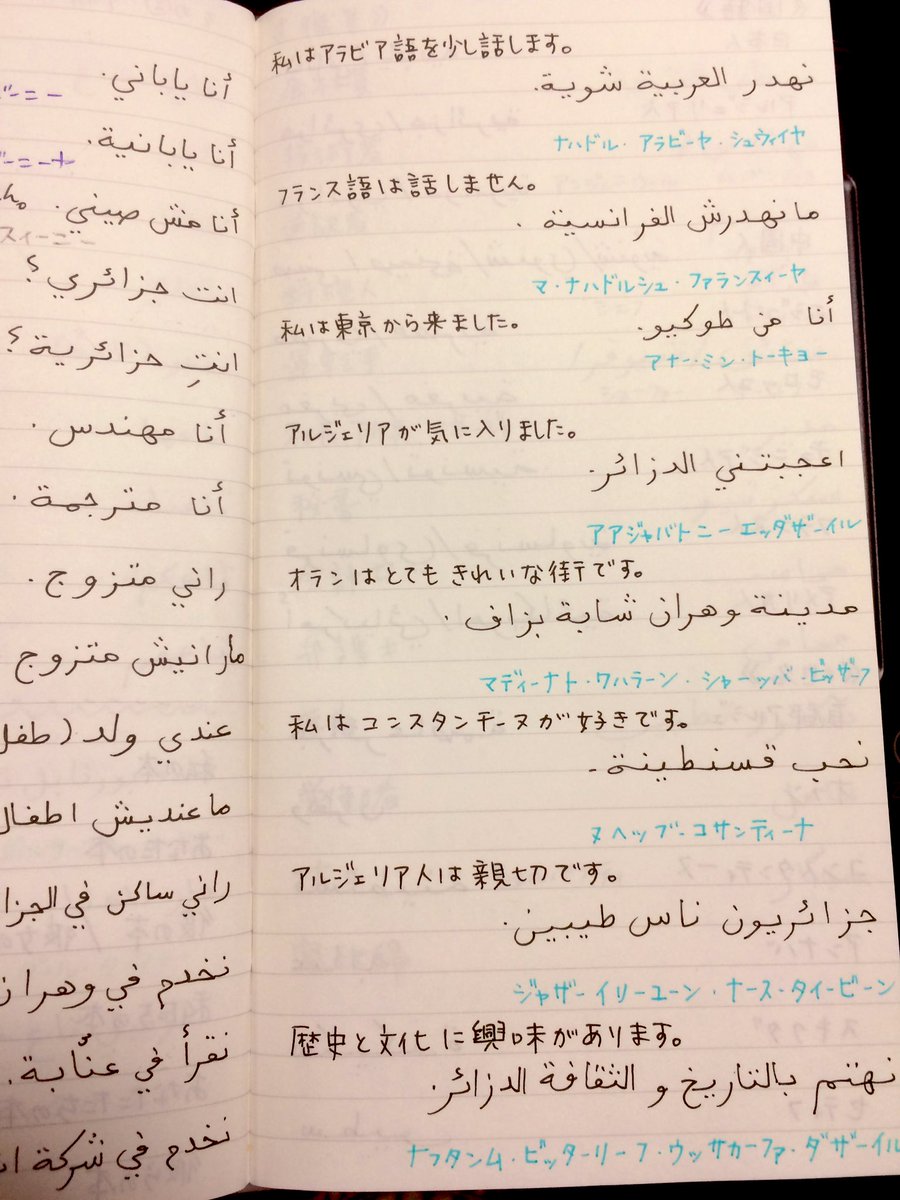 أنا ياباني.
أنا يابانية.
أنا مش صيني.
انت جزائري؟
انتِ جزائرية؟
أنا مهندس.
أنا مترجمة.
راني متزوج.
مارانيش متزوج
عندي ولد (طفل
ماعنديش اطفال
راني ساكن في الجزا
نخدم في وهران
نقرأ في عنّابة.
نخدم في شركة
私はアラビア語を少し話します。
نهدر العربية شوية.
ナハドル・アラビーヤ・シュウィイヤ
フランス語は話しません。
مانهدرش الفرانسية.
マ・ナハドルシュ・ファランスィーヤ
私は東京から来ました。
أنا من طوكيو.
アナー・ミン・トーキョー
アルジェリアが気に入りました。
اعجبتني الدزائر.
アアジャバトニーエッダザーイル
オランはとてもきれいな街です。
مدينة وهران شابة بزاف.
マディーナト・ワハラーン・シャーッバ・ビッザーフ
私はコンスタンチーヌが好きです。
نحب قسنطينة.
ヌヘッブーコサンティーナ
アルジェリア人は親切です。
جزائريون ناس طيبين.
ジャザーイリーユーン・ナース・タイービーン
歴史と文化に興味があります。
نهتم بالتاريخ و الثقافة الدزائر.
ナフタンム・ビッターリーフ・ウッサカーファ・ダザーイル